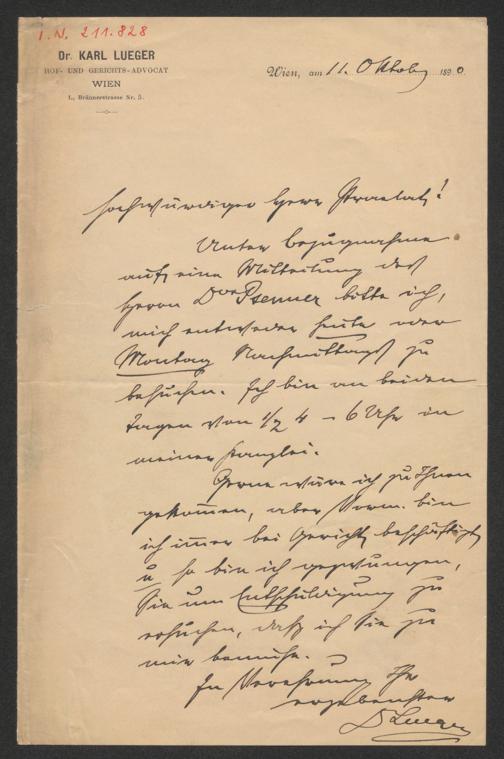 I.N. 211.828
Dr. KARL LUEGER
HOF- UND GERICHTS-ADVOCAT
WIEN
I., Bräunerstrasse Nr. 5.
Wien, am 11. Oktob 1890.
Hochwürdiger Herr Praelat!
Unter Bezugnahme
auf eine Mitteilung des
Herrn Dor Psenner bitte ich,
mich entweder heute oder
Montag Nachmittags zu
besuchen. Ich bin an beiden
Tagen von 1/2 4 – 6 Uhr in
meiner Kanzlei.
Gerne wäre ich zu Ihnen
gekommen, aber Vorm. bin
ich immer bei Gericht beschäftigt
u so bin ich gezwungen,
Sie um Entschuldigung zu
ersuchen, daß ich Sie zu
mir bemühe.
In Verehrung Ihr
ergebenster
DLueger